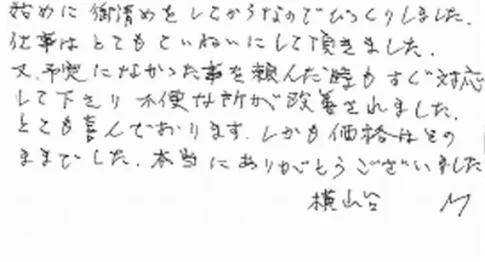 始めに御清めをしてからなのでびっくりしました。
仕事はとてもていねいにして頂きました。
又、予定になかった事を頼んだ時もすぐ対応
して下さり不便な所が改善されました。
とても喜んでおります。しかも価格はその
ままでした。本当にありがとうございました
横山台 M